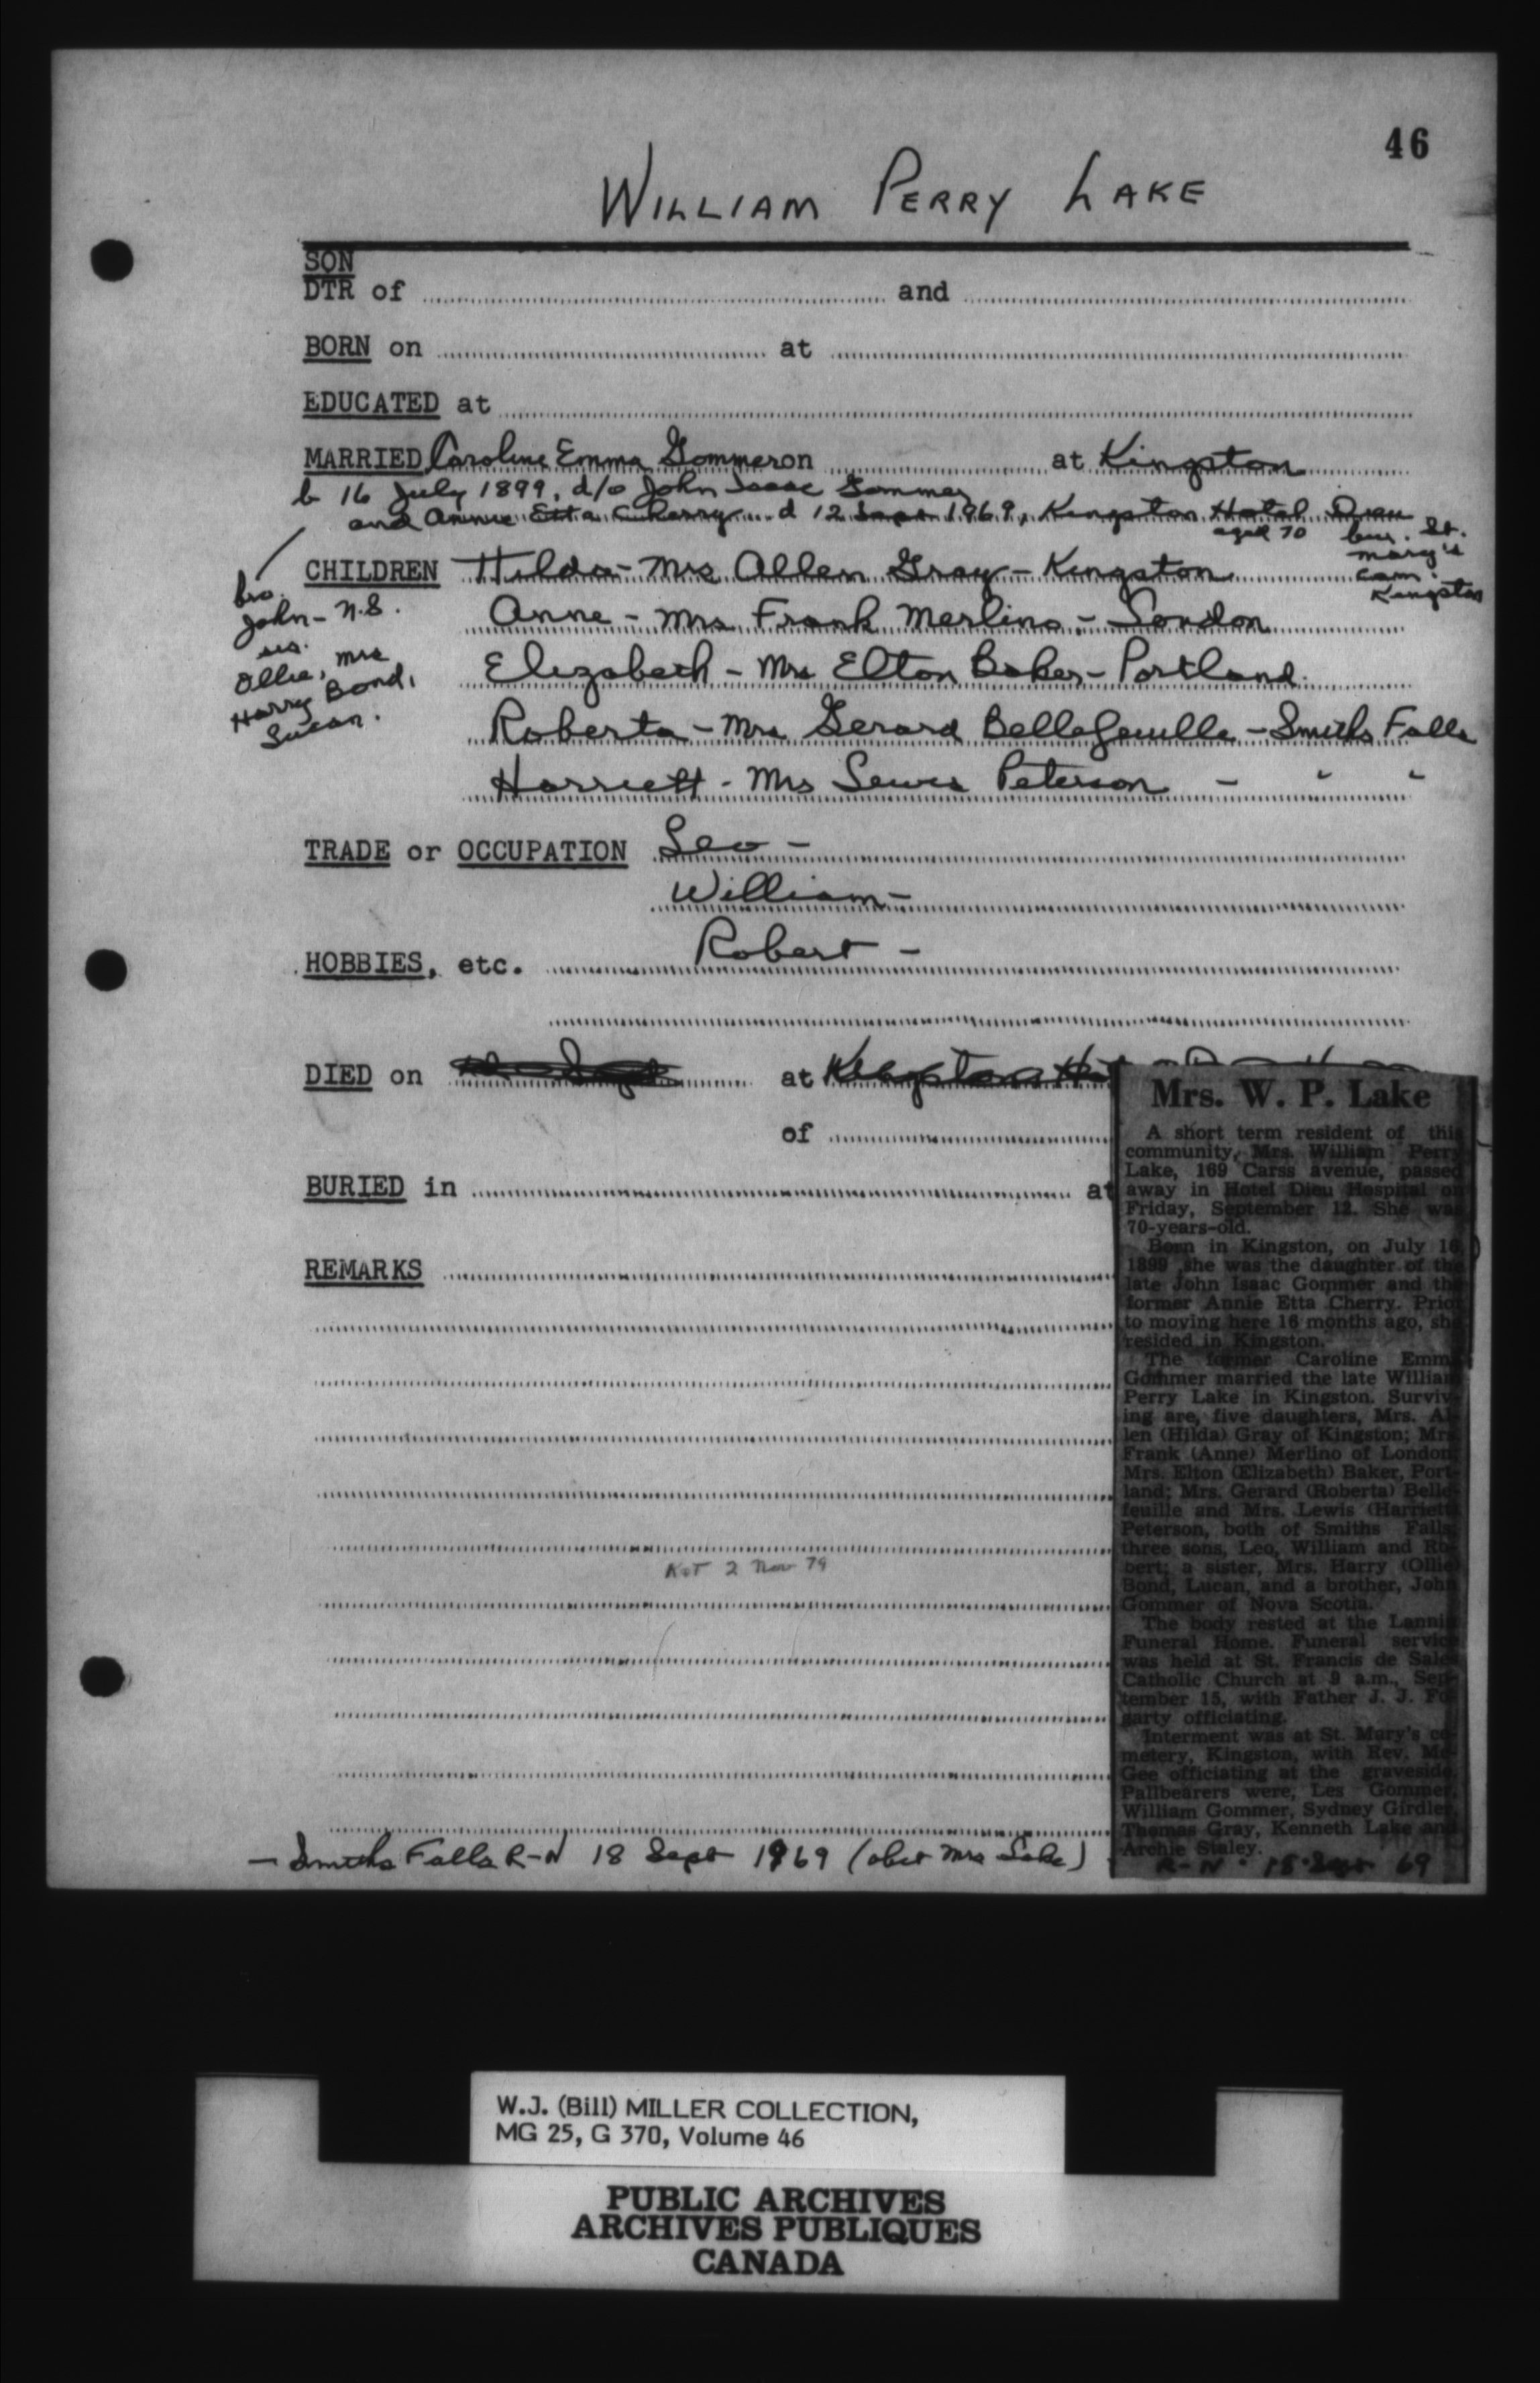 46
WILLIAM PERRY LAKE
SON
DTR of and
BORN on at
EDUCATED at
MARRIED Caroline Emma Gommer on at Kingston
b 16 July 1899, d/o John Isaac Gommer
and Annie Etta Cherry d 12 Sept 1969, Kingston Hotel Dieu
aged 70 bur. St.
Mary's
cem.
Kingston
CHILDREN Hilda - Mrs Allen Gray - Kingston
Anne - Mrs Frank Merlino - London
Elizabeth - Mrs Elton Baker - Portland
Roberta - Mrs Gerard Bellefeuille - Smiths Falls
Harriett - Mrs Lewis Peterson - " "
bro.
John - N.S.
sis.
Ollie, Mrs
Harry Bond,
Lucan.
TRADE or OCCUPATION Leo -
William -
HOBBIES, etc. Robert -
DIED on at Kingston
of
BURIED in at
REMARKS
2 Nov 79
- Smiths Falls R-N 18 Sept 1969 (obit Mrs Lake)
Mrs. W. P. Lake
A short term resident of this
community, Mrs. William Perry
Lake, 169 Carss avenue, passed
away in Hotel Dieu Hospital on
Friday, September 12. She was
70-years-old.
Born in Kingston, on July 16,
1899 she was the daughter of the
late John Isaac Gommer and the
former Annie Etta Cherry. Prior
to moving here 16 months ago, she
resided in Kingston.
The former Caroline Emma
Gommer married the late William
Perry Lake in Kingston. Surviv-
ing are, five daughters, Mrs. Al-
len (Hilda) Gray of Kingston; Mrs.
Frank (Anne) Merlino of London;
Mrs. Elton (Elizabeth) Baker, Port-
land; Mrs. Gerard (Roberta) Belle-
feuille and Mrs. Lewis (Harriett)
Peterson, both of Smiths Falls;
three sons, Leo, William and Ro-
bert; a sister, Mrs. Harry (Ollie)
Bond, Lucan, and a brother, John
Gommer of Nova Scotia.
The body rested at the Lannin
Funeral Home. Funeral service
was held at St. Francis de Sales
Catholic Church at 9 a.m., Sep-
tember 15, with Father J. J. Fo-
garty officiating.
Interment was at St. Mary's ce-
metery, Kingston, with Rev. Mc-
Gee officiating at the graveside.
Pallbearers were, Les Gommer,
William Gommer, Sydney Girdler,
Thomas Gray, Kenneth Lake and
Archie Staley.
R-N 18 Sept 69
W.J. (Bill) MILLER COLLECTION,
MG 25, G 370, Volume 46
PUBLIC ARCHIVES
ARCHIVES PUBLIQUES
CANADA